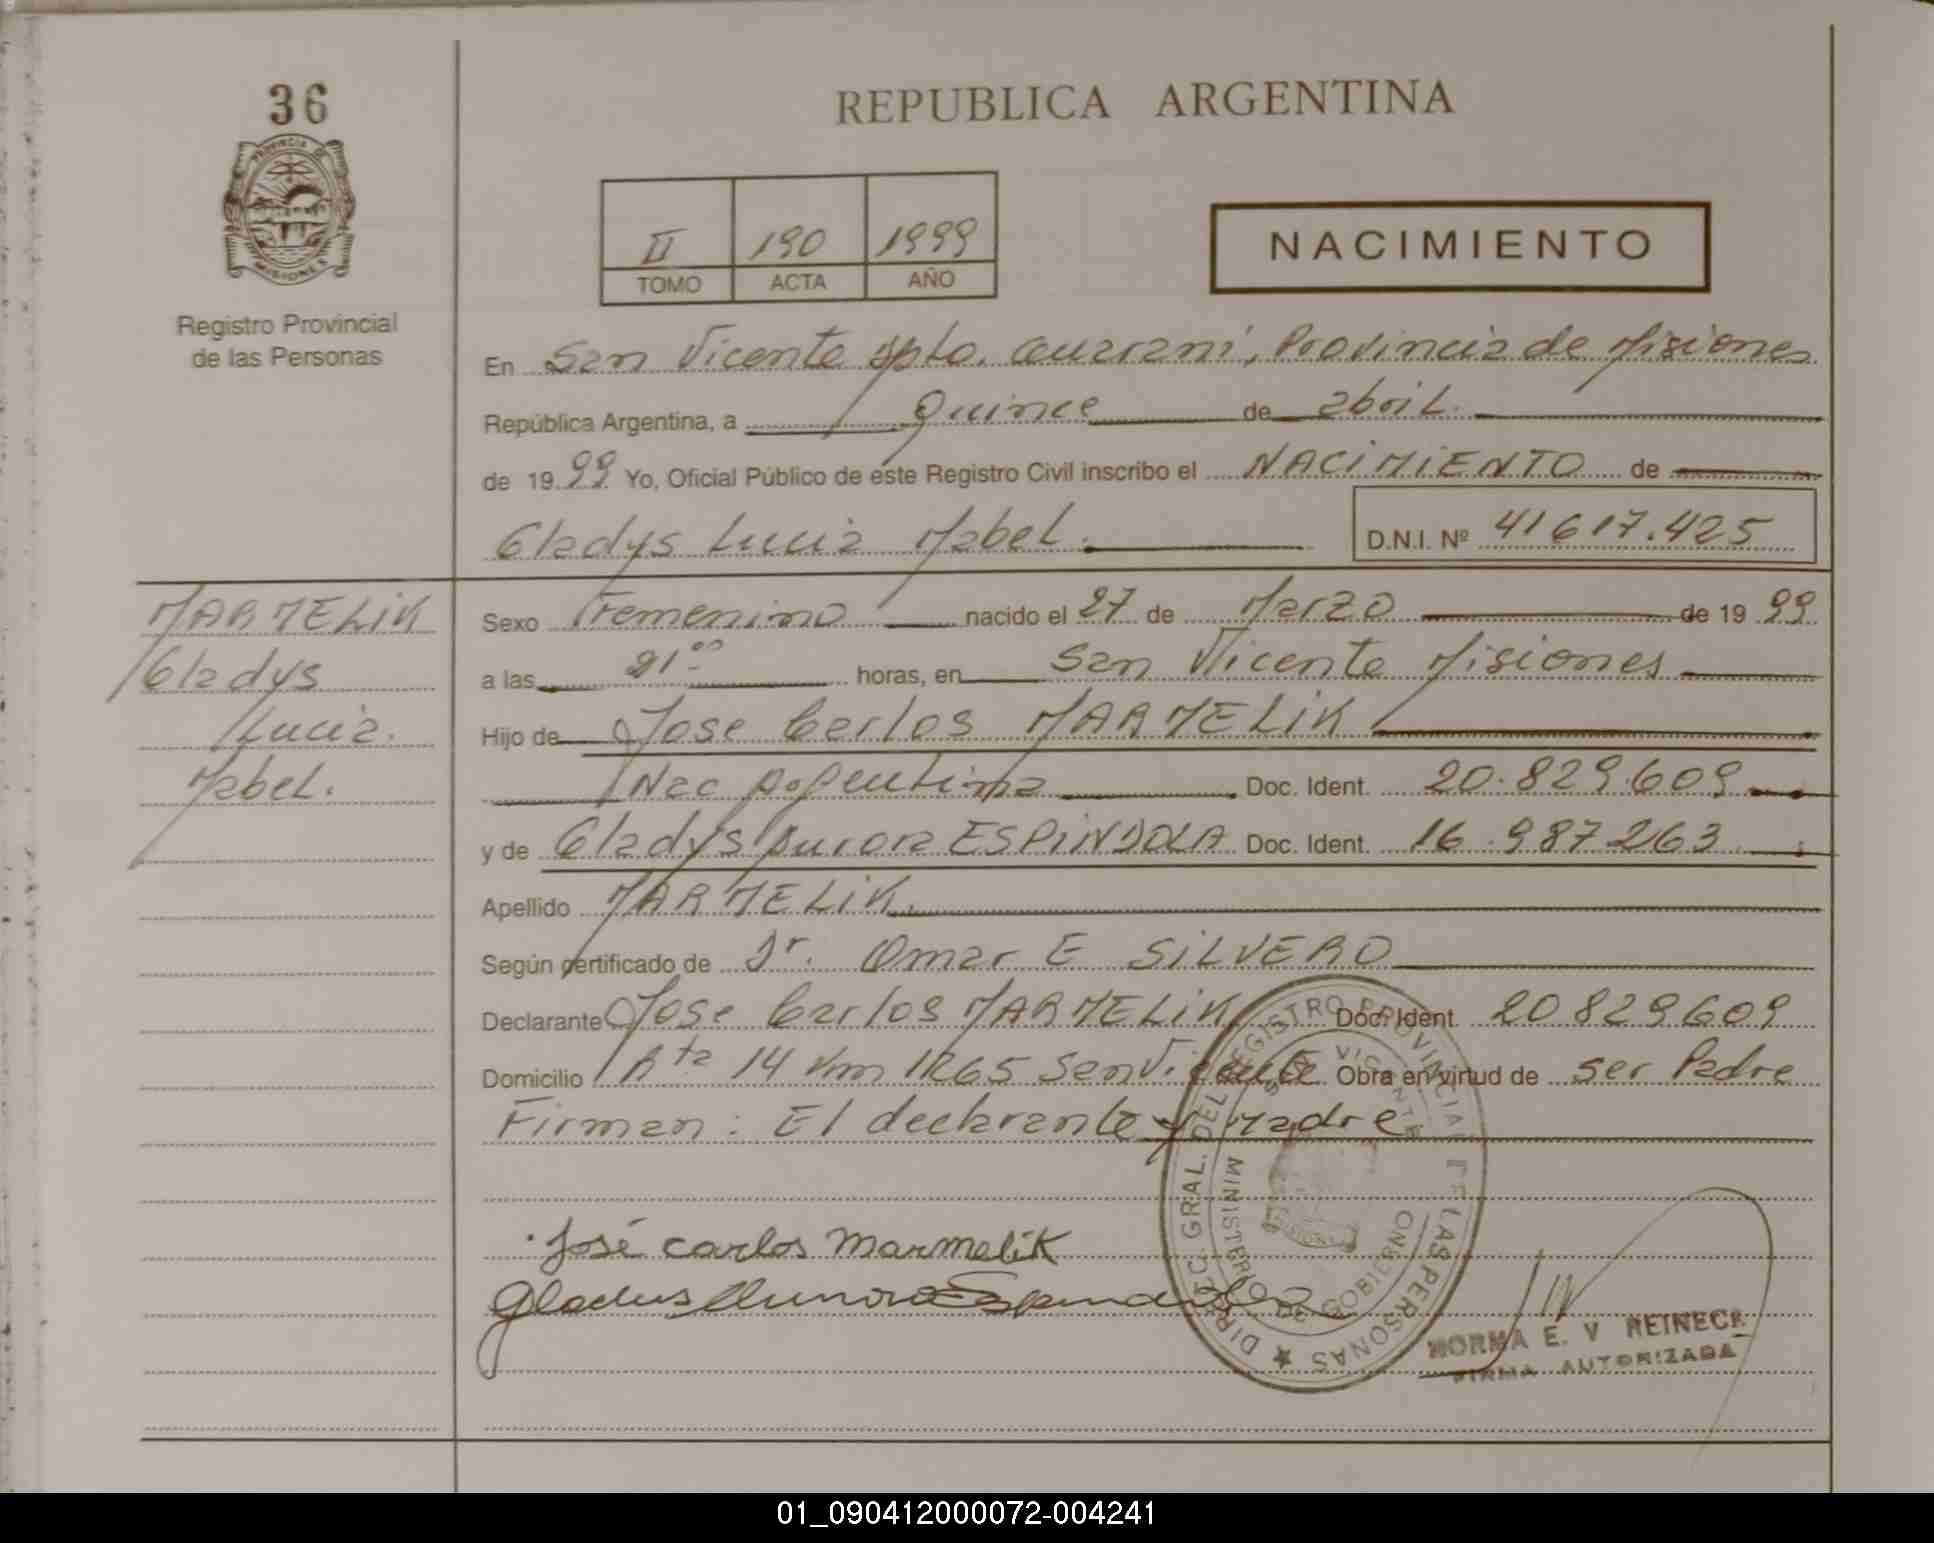 36
PROVINCIA DE
MISIONES
Registro Provincial
de las Personas
REPUBLICA ARGENTINA
II 190 1999
TOMO ACTA AÑO
NACIMIENTO
En San Vicente Dpto. Guarani, Provincia de Misiones
República Argentina, a Quince de abril.
de 1999 Yo, Oficial Público de este Registro Civil inscribo el NACIMIENTO de
Gladys Lucia Mabel.
D.N.I. Nº 41617.425
MARMELIK
Gladys
Lucia.
Mabel.
Sexo Femenino nacido el 27 de Marzo de 1999
a las 21ºº horas, en San Vicente Misiones
Hijo de Jose Carlos MARMELIK
Nac Argentina Doc. Ident. 20.829.609
y de Gladys Aurora ESPINDOLA Doc. Ident. 16.987263
Apellido MARMELIK.
Según certificado de Dr. Omar E SILVERO
Declarante Jose Carlos MARMELIK Doc. Ident. 20829609
Domicilio Rta 14 Km 1265 San Vicente Obra en virtud de ser Padre
Firman: El declarante y madre
José carlos Marmelik
Gladys Aurora Espindola
DIREC. GRAL. DEL REGISTRO PROVINCIAL DE LAS PERSONAS
SAN VICENTE
MINISTERIO DE GOBIERNO
NORMA E. V REINECK
FIRMA AUTORIZADA
01_090412000072-004241